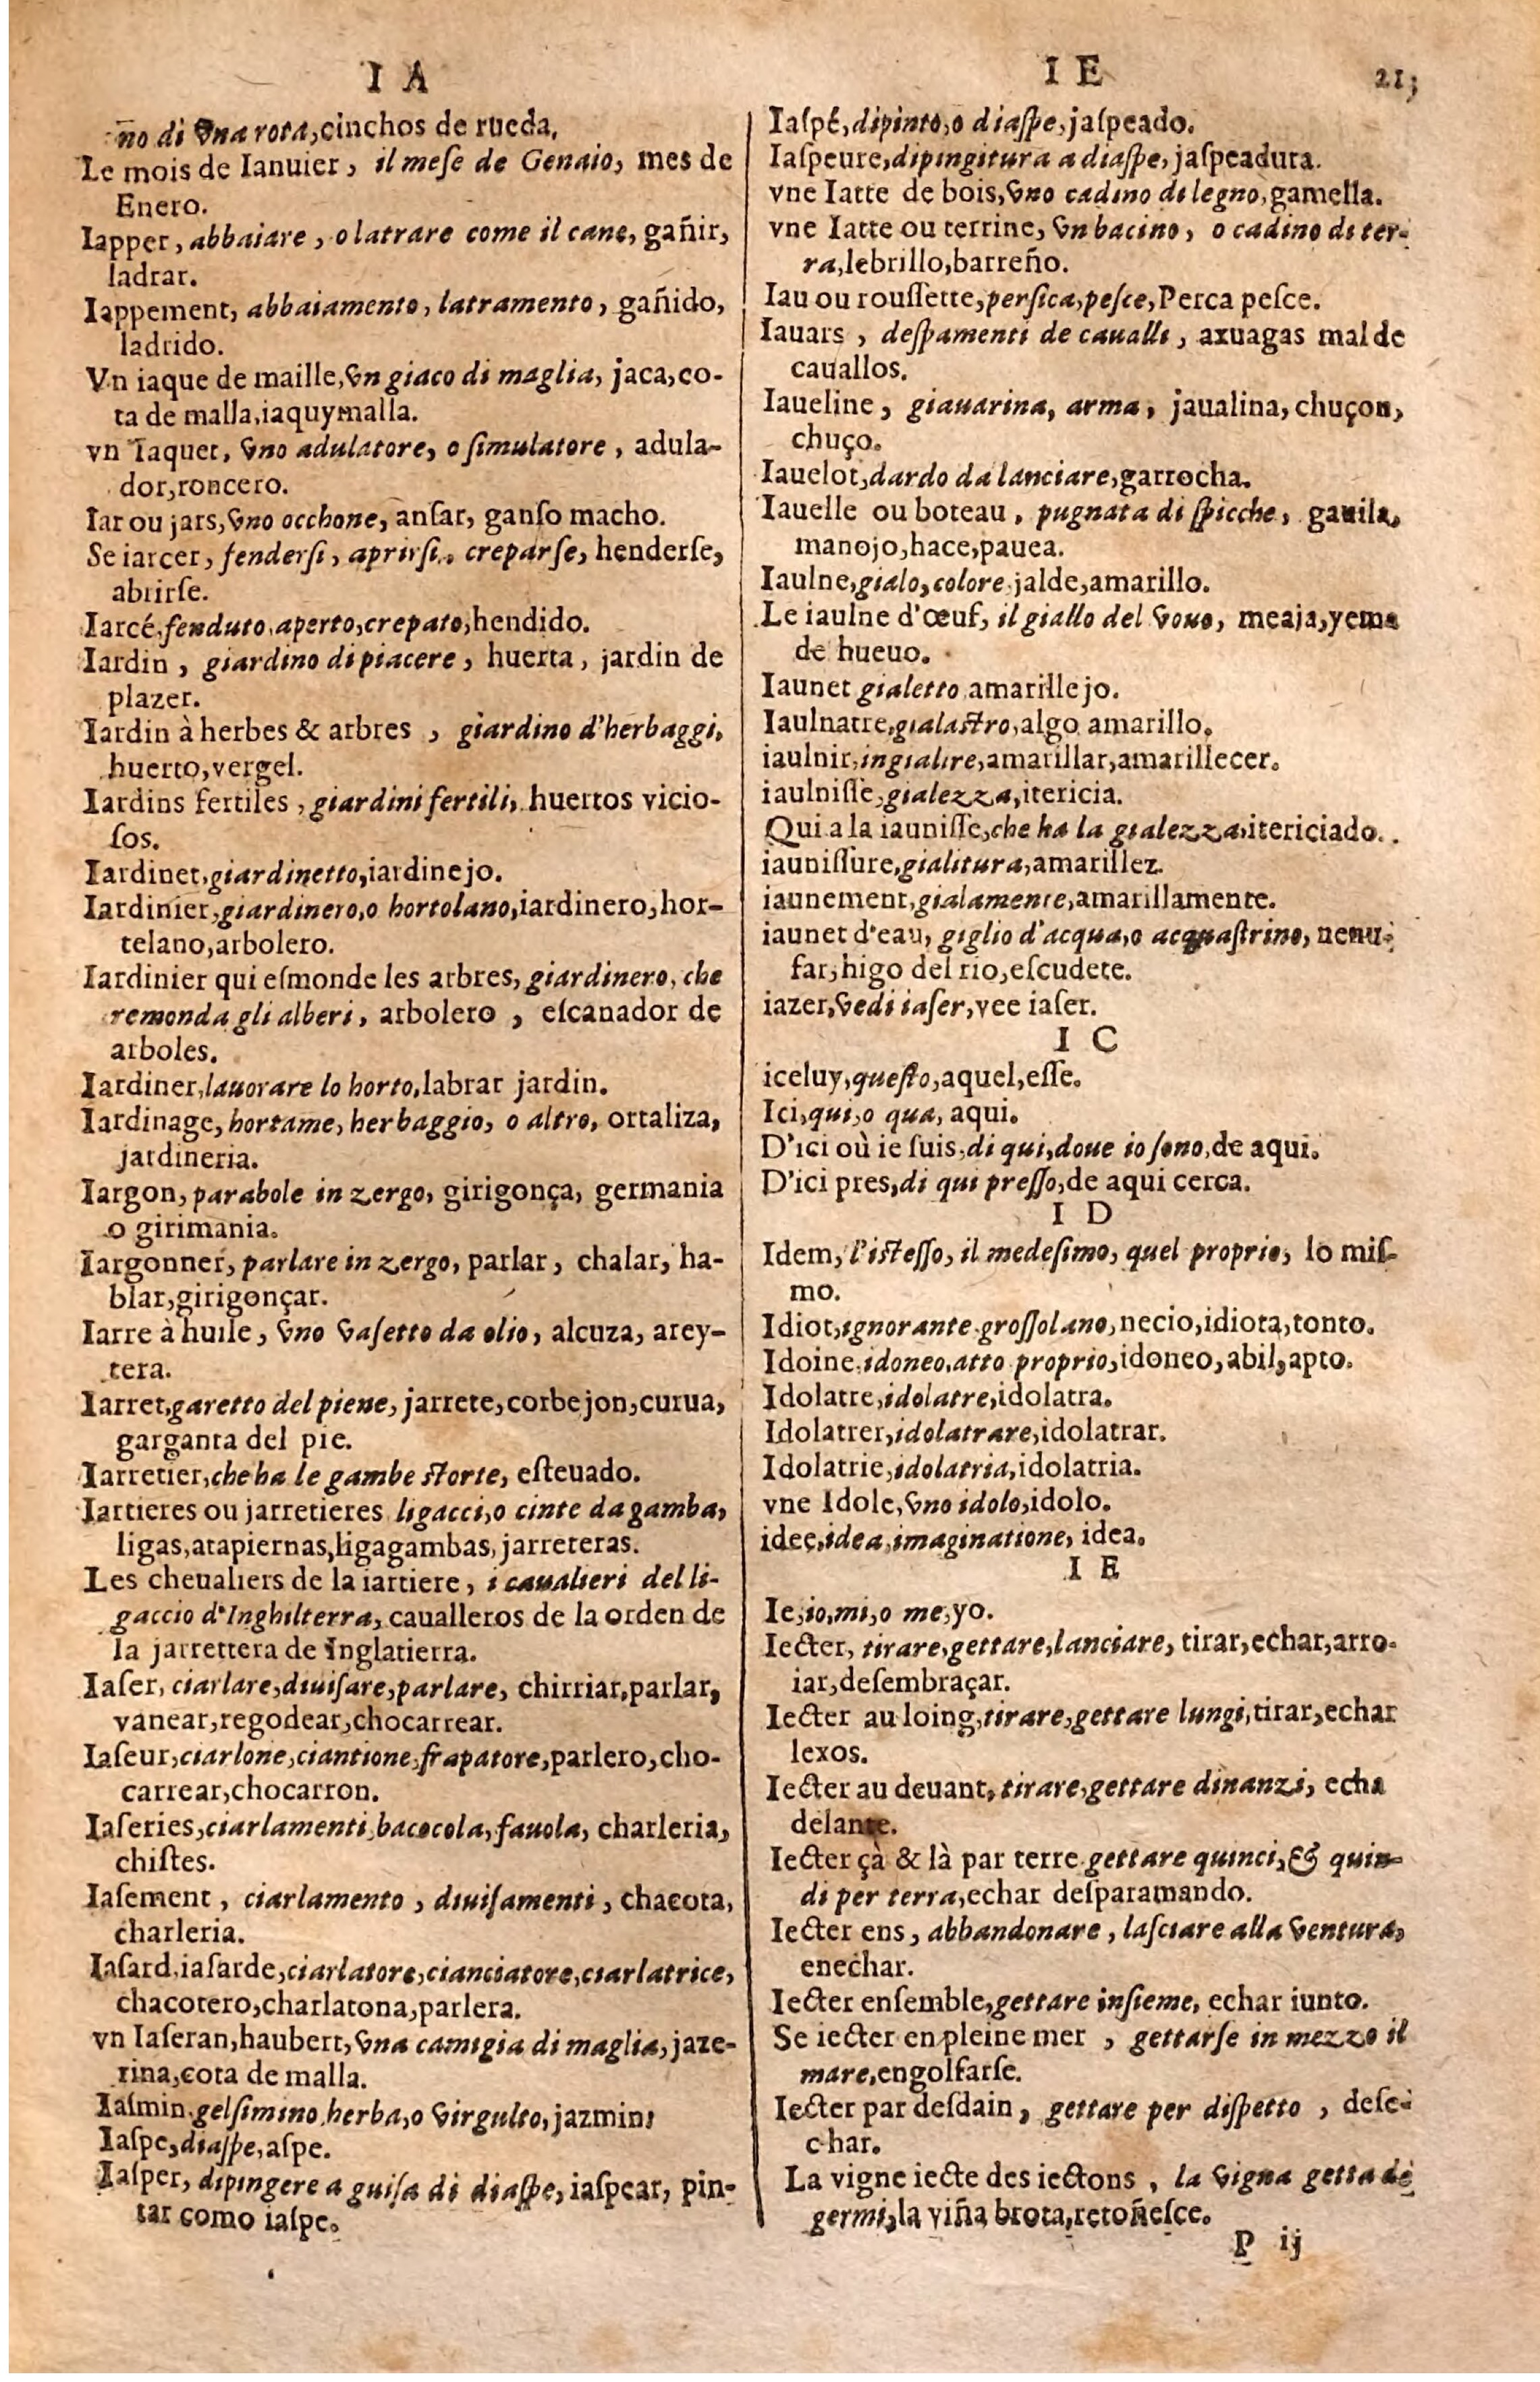 I A
no di vna rota,cinchos de rueda.
Le mois de Ianuier, il meſe de Genaio, mes de
Enero.
Iapper, abbaiare, o latrare come il cane, gañir,
ladrar.
Iappement, abbaiamento, latramento, gañido,
ladrido.
Vn iaque de maille,vn giaco di maglia, jaca,co-
ta de malla,iaquymalla.
vn Iaquet, vno adulatore, o ſimulatore, adula-
dor,roncero.
Iar ou jars,vno occhone, anſar, ganſo macho.
Se iarcer, fenderſi, aprirſi, creparſe, henderſe,
abrirſe.
Iarcé,fenduto,aperto,crepato,hendido.
Iardin, giardino di piacere, huerta, jardin de
plazer.
Iardin à herbes & arbres, giardino d'herbaggi,
huerto,vergel.
Iardins fertiles, giardini fertili, huertos vicio-
ſos.
Iardinet,giardinetto,iardinejo.
Iardinier,giardinero,o hortolano,iardinero,hor-
telano,arbolero.
Iardinier qui eſmonde les arbres, giardinero, che
remonda gli alberi, arbolero, eſcanador de
arboles.
Iardiner,lauorare lo horto,labrar jardin.
Iardinage, hortame, herbaggio, o altro, ortaliza,
jardineria.
Iargon, parabole in zergo, girigonça, germania
o girimania.
Iargonner, parlare in zergo, parlar, chalar, ha-
blar,girigonçar.
Iarre à huile, vno vaſetto da olio, alcuza, arey-
tera.
Iarret,garetto del piene, jarrete,corbejon,curua,
garganta del pie.
Iarretier,che ha le gambe ſtorte, eſteuado.
Iartieres ou jarretieres ligacci,o cinte da gamba,
ligas,atapiernas,ligagambas,jarreteras.
Les cheualiers de la iartiere, i caualieri del li-
gaccio d'Inghilterra, caualleros de la orden de
la jarrettera de Inglatierra.
Iaſer, ciarlare,diuiſare,parlare, chirriar,parlar,
vanear,regodear,chocarrear.
Iaſeur,ciarlone,ciantione,frapatore,parlero,cho-
carrear,chocarron.
Iaſeries,ciarlamenti,bacocola,fauola, charleria,
chiſtes.
Iaſement, ciarlamento, diuiſamenti, chacota,
charleria.
Iaſard,iaſarde,ciarlatore,cianciatore,ciarlatrice,
chacotero,charlatona,parlera.
vn Iaſeran,haubert,vna camigia di maglia,jaze-
rina,cota de malla.
Iaſmin,gelſimino,herba,o virgulto,jazmin;
Iaſpe,diaſpe,aſpe.
Iaſper, dipingere a guiſa di diaſpe, iaſpear, pin-
tar como iaſpe.
I E
213
Iaſpé,dipinto,o diaſpe,jaſpeado.
Iaſpeure,dipingitura a diaſpe, jaſpeadura.
vne Iatte de bois,vno cadino di legno,gamella.
vne Iatte ou terrine, vn bacino, o cadino di ter-
ra,lebrillo,barreño.
Iau ou rouſſette,perſica,peſce,Perca peſce.
Iauars, deſpamenti de caualli, axuagas mal de
cauallos.
Iaueline, giauarina, arma, jaualina, chuçon,
chuço.
Iauelot,dardo da lanciare,garrocha.
Iauelle ou boteau, pugnata di ſpicche, gauila,
manojo,hace,pauea.
Iaulne,gialo,colore jalde,amarillo.
Le iaulne d'œuf, il giallo del vouo, meaja,yema
de hueuo.
Iaunet gialetto amarillejo.
Iaulnatre,gialaſtro,algo amarillo.
iaulnir,ingialire,amarillar,amarillecer.
iaulniſſe,gialezza,itericia.
Qui a la iauniſſe,che ha la gialezza,itericiado.
iauniſſure,gialitura,amarillez.
iaunement,gialamente,amarillamente.
iaunet d'eau, giglio d'acqua,o acquaſtrino, nenu-
far,higo del rio,eſcudete.
iazer,vedi iaſer,vee iaſer.
I C
iceluy,queſto,aquel,eſſe.
Ici,qui,o qua, aqui.
D'ici où ie ſuis,di qui,doue io ſono,de aqui.
D'ici pres,di qui preſſo,de aqui cerca.
I D
Idem, l'iſteſſo, il medeſimo, quel proprio, lo miſ-
mo.
Idiot,ignorante groſſolano,necio,idiota,tonto.
Idoine,idoneo,atto proprio,idoneo,abil,apto.
Idolatre,idolatre,idolatra.
Idolatrer,idolatrare,idolatrar.
Idolatrie,idolatria,idolatria.
vne Idole,vno idolo,idolo.
idee,idea,imaginatione, idea.
I E
Ie,io,mi,o me,yo.
Iecter, tirare,gettare,lanciare, tirar,echar,arro-
iar,deſembraçar.
Iecter au loing,tirare,gettare lungi,tirar,echar
lexos.
Iecter au deuant,tirare,gettare dinanzi, echa
delante.
Iecter çà & là par terre gettare quinci,& quin-
di per terra,echar deſparamando.
Iecter ens, abbandonare, laſciare alla ventura,
enechar.
Iecter enſemble,gettare inſieme, echar iunto.
Se iecter en pleine mer, gettarſe in mezzo il
mare,engolfarſe.
Iecter par deſdain, gettare per diſpetto, deſe-
char.
La vigne iecte des iectons, la vigna getta de
germi,la viña brota,retoñeſce.
P ij